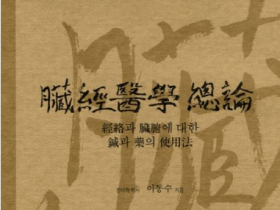 臟經醫學總論
經絡과 臟腑에 대한
鍼과 藥의 使用法
이동수 지음